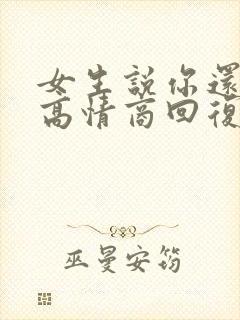 女生說你還
高情商回復
巫曼安筠